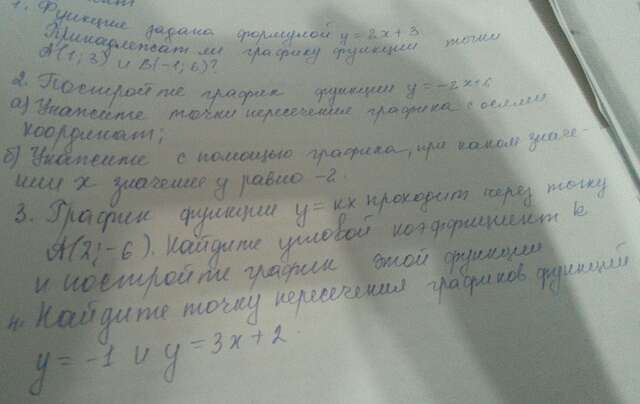 1. Функция задана формулой y = 2x + 3
Принадлежат ли графику функции точки
A(1; 3) и B(-1; 6)?
2. Постройте график функции y = -2x+6
а) Укажите точки пересечения графика с осями
координат;
б) Укажите с помощью графика, при каком значе-
нии x значение y равно -2.
3. График функции y = kx проходит через точку
A(2; -6). Найдите угловой коэффициент k
и постройте график этой функции
4. Найдите точку пересечения графиков функций
y = -1 и y = 3x + 2.